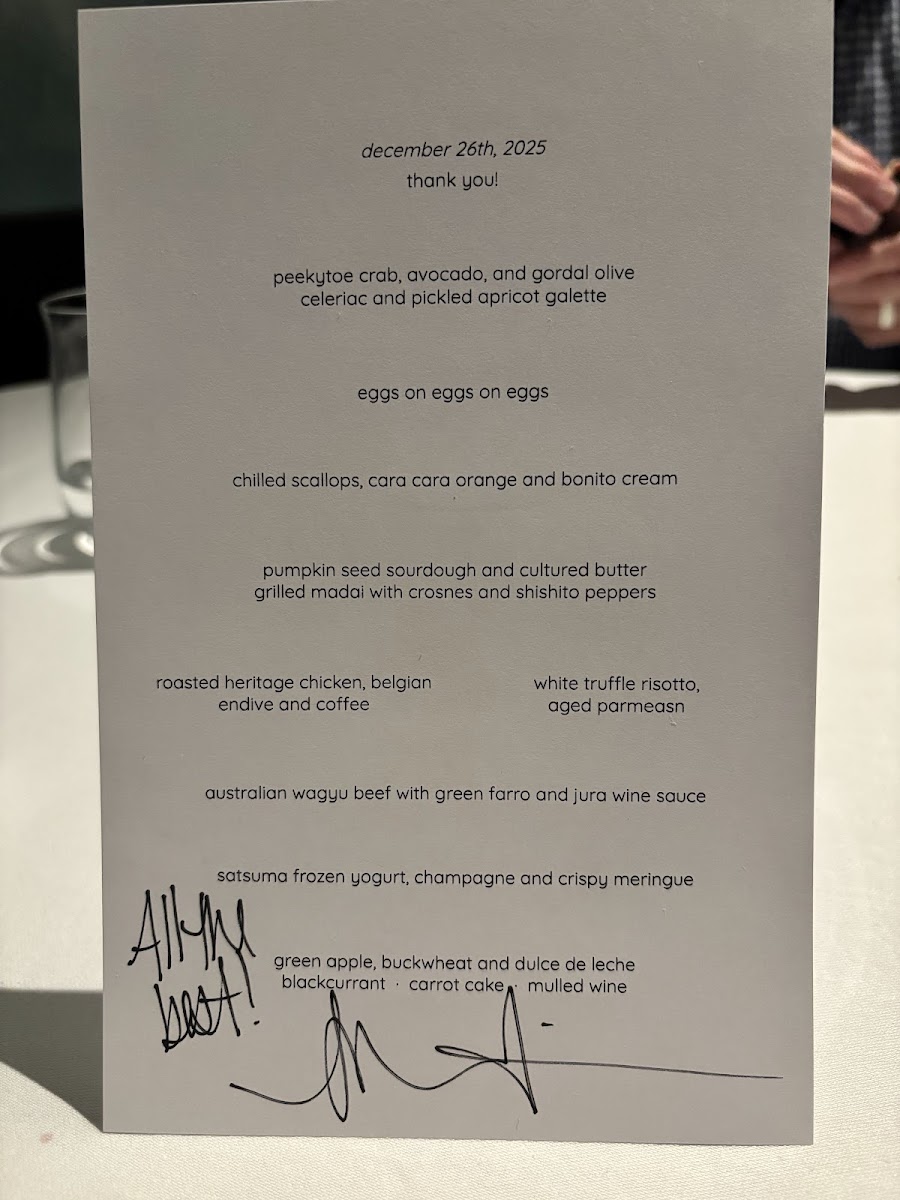 december 26th, 2025
thank you!
peekytoe crab, avocado, and gordal olive
celeriac and pickled apricot galette
eggs on eggs on eggs
chilled scallops, cara cara orange and bonito cream
pumpkin seed sourdough and cultured butter
grilled madai with crosnes and shishito peppers
roasted heritage chicken, belgian
endive and coffee
white truffle risotto,
aged parmeasn
australian wagyu beef with green farro and jura wine sauce
satsuma frozen yogurt, champagne and crispy meringue
green apple, buckwheat and dulce de leche
blackcurrant · carrot cake · mulled wine
All the
best!